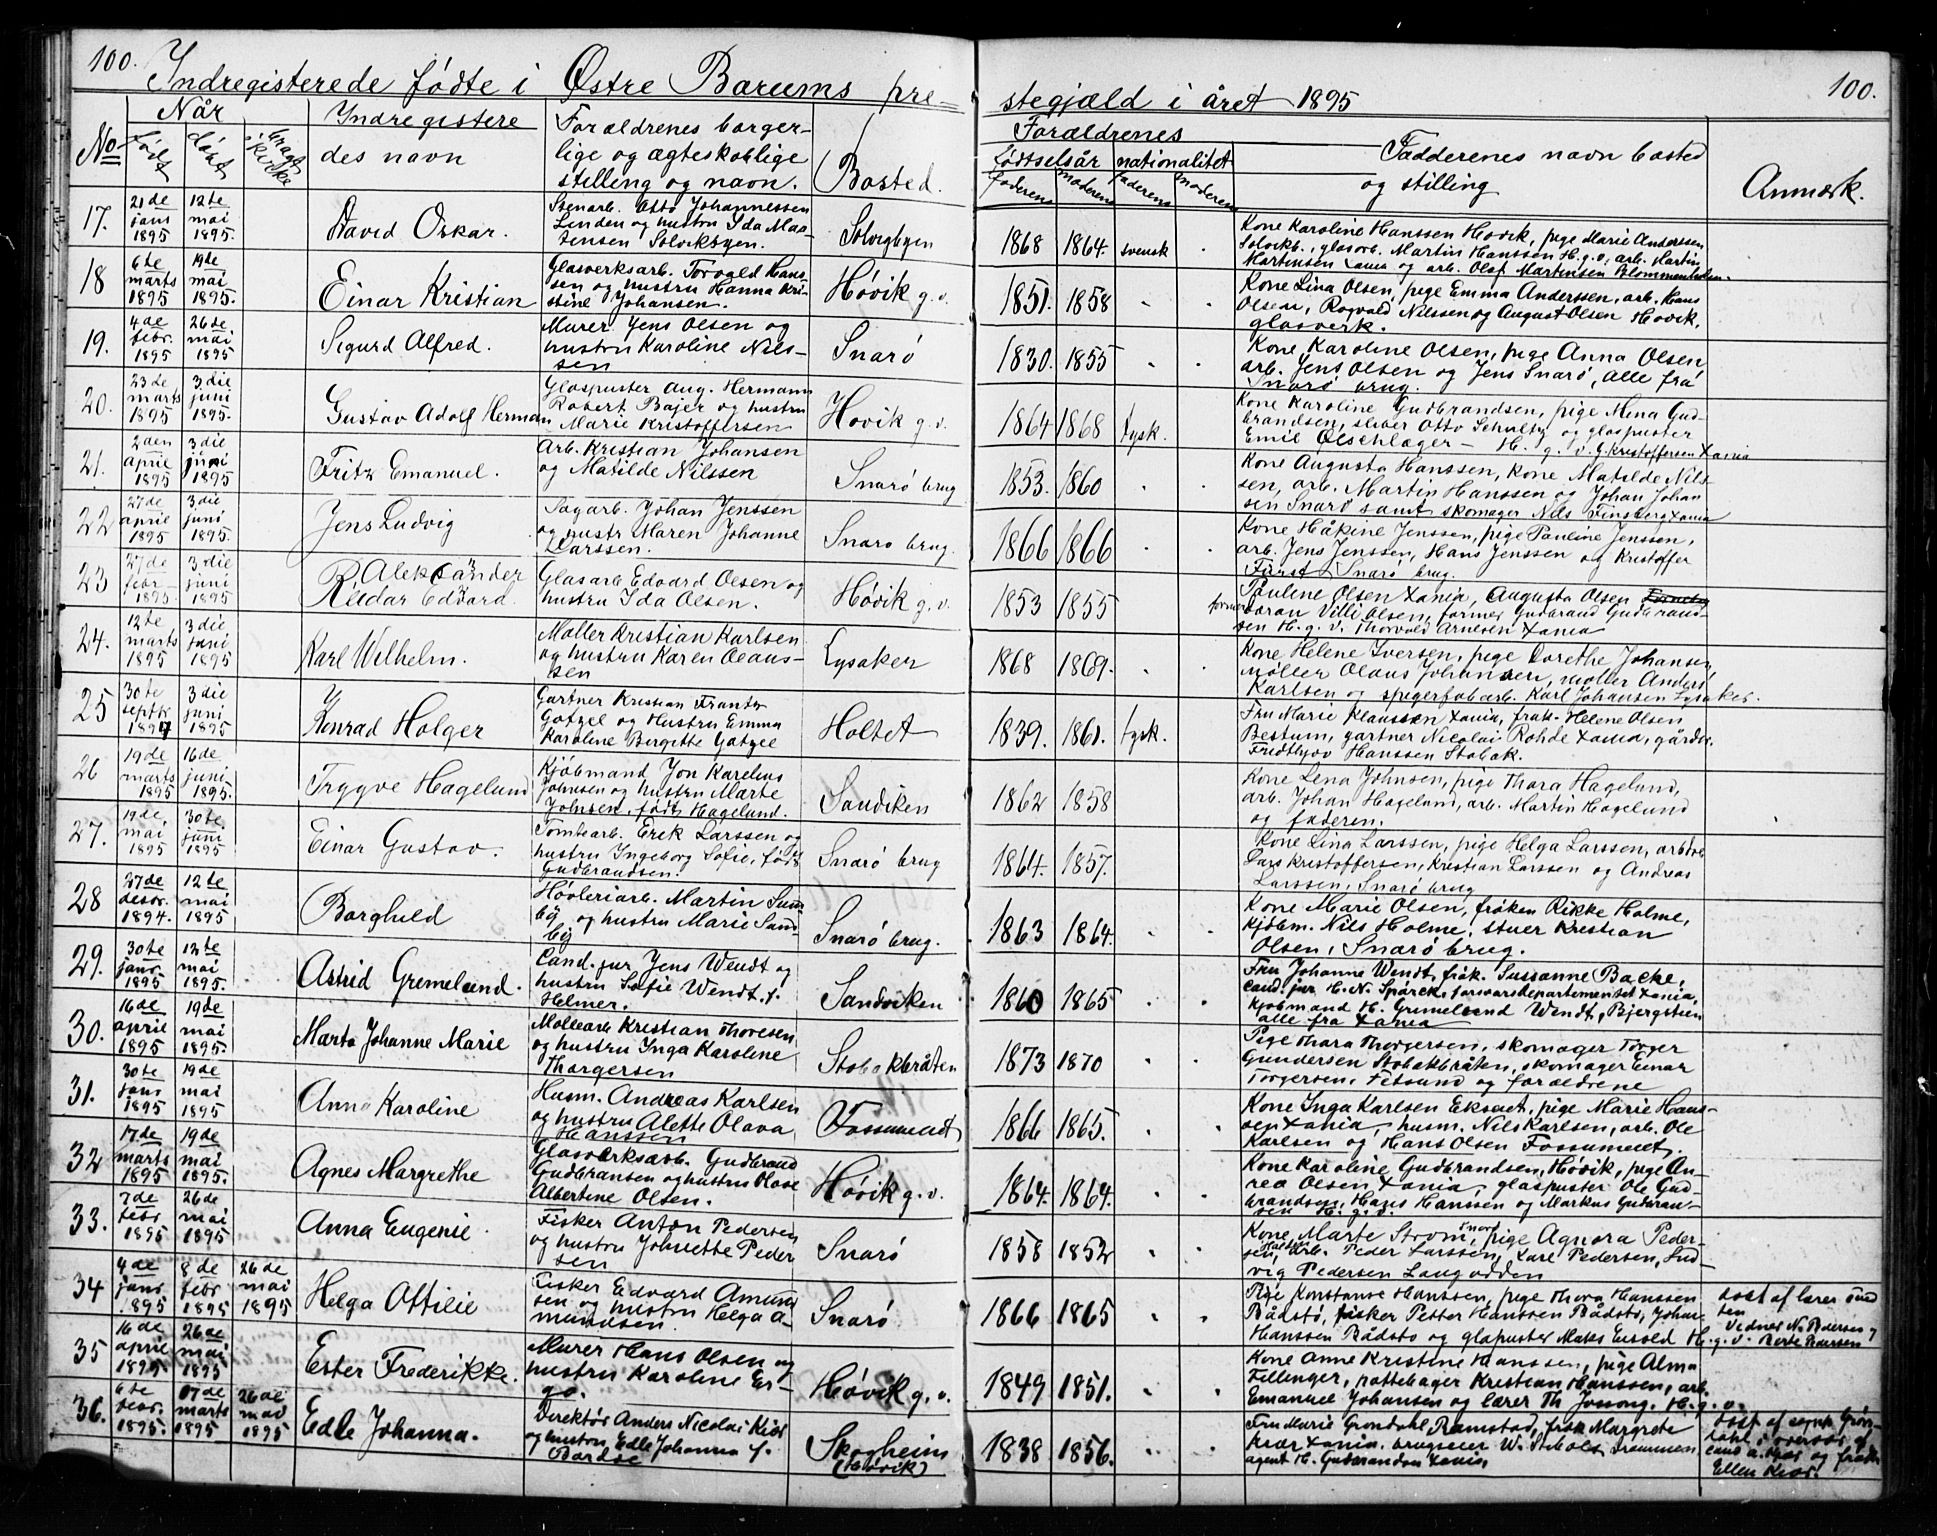 100.
Indregisterede fødte i Østre Bærums pre-
stegjæld i året 1895
100.
No
Når
født
døbt
bragt i kirke
Indregistere
des navn
Forældrenes borger-
lige og ægteskablige
stilling og navn.
Bosted.
Forældrenes
fødselsår nationalitet
faderens moderens faderens moderens
Fadderenes navn bosted
og stilling
Anmerk.
17.
21de jans 1895
12te mai 1895.
David Oskar.
Stenarb. Otto Johannessen
Linden og hustru Ida Ma-
tensen Solviksgen.
Solvigbyen
1868 1864. svensk
Kone Karoline Hanssen Høvik, pige Marie Anderssen
Solvikb., glasarb. Martin Hanssen H.g.v., arb. Martin
Martinsen Xania og arb. Olaf Martinsen Blommenholm.
18
6te marts 1895
19de mai 1895.
Einar Kristian
Glasverksarb. Torvald Hans-
sen og hustru Hanna Kri-
stine Johansen.
Høvik g.v.
1851. 1858
Kone Lina Olsen, pige Emma Anderssen, arb. Hans
Olsen, Rogvald Nilssen og August Olsen Høvik,
glasverk.
19.
4de febr. 1895
26de mai 1895
Sigurd Alfred.
Murer Jens Olsen og
hustru Karoline Nils-
sen
Snarø
1830. 1855
Kone Karoline Olsen, pige Anna Olsen
arb. Jens Olsen og Jens Snarø, alle fra
Snarø brug.
20.
23de marts 1895
3die juni 1895.
Gustav Adolf Herman
Glaspuster Aug. Hermann
Robert Bajer og hustru
Marie Kristoffersen
Høvik g.v.
1864 1868 tysk.
Kone Karoline Gudbrandsen, pige Mina Gud-
brandsen, sliber Otto Schultz og glaspuster
Emil Ølschlager - H. g. v. G. Kristoffersen Xania
21.
2den april 1895
3die juni 1895
Fritz Emanuel.
Arb. Kristian Johansen
og Matilde Nilssen
Snarø brug
1853. 1860
Kone Augusta Hanssen, Kone Matilde Nils-
sen, arb. Martin Hanssen og Johan Johan
sen Snarø samt skomager Nils Finsberg Xania
22
27de april 1895
3die juni 1895
Jens Ludvig
Sagarb. Johan Jenssen
og hustr Maren Johanne
Larssen.
Snarø brug.
1866 1866
Kone Håkine Jenssen, pige Pauline Jenssen,
arb. Jens Jenssen, Hans Jenssen og Kristoffer
Fürst Snarø brug.
23
27de febr 1895.
3die juni 1895
Aleksander
Reidar Edvard.
Glasarb Edvard Olsen og
hustru Ida Olsen.
Høvik g.v.
1853 1855
Pauline Olsen Xania, Augusta Olsen
Villi Olsen, former Gudbrand Gudbrand-
sen H.g.v. Thorvald Arnesen Xania
24.
12te marts 1895
3die juni 1895
Karl Wilhelm.
Møller Kristian Karlsen
og hustru Karen Olaus-
sen
Lysaker
1868 1869.
Kone Helene Iversen, pige Dorethe Johansen,
møller Olaus Johansen, møller Anders
Karlsen og spigerfabarb. Karl Johansen Lysaker.
25
30te septb. 1894
3die juni 1895
Konrad Holger
Gartner Kristian Frantz
Gatzel og Hustru Emma
Karoline Birgitte Gatzel
Holtet
1839. 1861. tysk.
Fru Marie Klaussen Xania, frøk. Helene Olsen
Bestum, gartner Nicolai Rohde Xania, gårdb.
Fredthjov Hanssen Stabak.
26
19de marts 1895
16de juni 1895.
Trygve Hagelund
Kjøbmand Jon Karelius
Johnsen og hustru Marte
Johnsen, født Hagelund.
Sandviken
1862 1858
Kone Lena Johnsen, pige Thara Hagelund,
arb. Johan Hagelund, arb. Martin Hagelund
og faderen.
27.
19de mai 1895
30te juni 1895
Einar Gustav.
Tomtearb. Erik Larssen og
hustru Ingeborg Sofie, født
Gudbrandsen.
Snarø brug
1864. 1857.
Kone Lina Larssen, pige Helga Larssen, arbdr.
Lars Kristoffersen, Kristian Larssen og Andreas
Larssen, Snarø brug
28
27de desbr. 1894.
12te mai 1895
Borghild
Høvleriarb. Martin Sund-
by og hustru Marie Sund-
by
Snarø brug.
1863 1864.
Kone Marie Olsen, frøken Rikke Holme,
kjøbm. Nils Holme, stuer Kristian
Olsen, Snarø brug.
29.
30te jans 1895
12te mai 1895.
Astrid Gremelund.
Cand. jur Jens Wendt og
hustru Sofie Wendt, f.
Helmer.
Sandviken
1860 1865
Fru Johanne Wendt, frøk. Sussanne Backe,
cand. jur H. N. Spärck, forsvarsdepartementet Xania,
kjøbmand H. Gremelund Wendt, Bjergstien
alle fra Xania
30.
16de april 1895
19de mai 1895.
Marta Johanne Marie
Møllearb Kristian Thoresen
og hustru Inga Karoline
Thorgersen
Stabakbråten
1873 1870
Pige Thara Thorgersen, skomager Torger
Gundersen Stabakbråten, skomager Einar
Torgersen, Fetsund og forældrene
31.
30te jans 1895
19de mai 1895
Anna Karoline
Husm. Andreas Karlsen
og hustru Alette Olava
Hanssen
Fossumeet
1866 1865.
Kone Inga Karlsen Ekset, pige Marie Hans-
sen Xania, husm. Nils Karlsen, arb. Ole
Karlsen og Hans Olsen Fossumeet.
32
17de marts 1895
19de mai 1895.
Agnes Margrethe
Glasverksarb. Gudbrand
Gudbransen og hustru Olave
Albertine Olsen.
Høvik g.v.
1864. 1864.
Kone Karoline Gudbrandsen, Høvik, pige An-
rea Olsen Xania, glaspuster Ole Gud-
brandsen, Hans Hanssen og Markus Gudbran-
sen H.g.v.
33.
7de febr. 1895
26de mai 1895
Anna Eugenie
Fisker Anton Pedersen
og hustru Johnette Peder
sen
Snarø
1858 1852
Kone Marte Strøm, pige Agnora Peder-
sen arb. Peder Larssen, Karl Pedersen, Lud-
vig Pedersen Langodden
34
4de jans 1895
8de febr 1895
26de mai 1895
Helga Ottilie
Fisker Edvard Amund
sen og hustru Helga A-
mundsen
Snarø
1866 1865
Pige Konstanse Hanssen, pige Thora Hanssen
Bådstø, fisker Petter Hanssen Bådstø, Johan
Hanssen Bådstø og glaspuster Mats Eivold H.g.v.
Døbt af lærer
Vidner N. Pedersen,
Berte Pedersen
35
16de april 1895
26de mai 1895
Ester Frederikke.
Murer Hans Olsen og
hustru Karoline En-
ga.
Høvik g.v.
1849 1851.
Kone Anne Kristine Hanssen, pige Alma
Zillenger, pottebager Kristian Hanssen, arb.
Emanuel Johansen og lærer Th. Jossong. H.g.v.
36.
6te febr. 1895.
17de marts 1895
26de mai 1895
Edle Johanna.
Direktør Anders Nicolai Kiær
og hustru Edle Johanna f.
Bardse
Skogheim
(Høvik)
1838 1856.
Fru Marie Grøndahl Ramstad, frøk Margrete
Kiær Xania, brugseier W. St Mols, Drammen
agent H. Gudbrandsen Xania,
Døbt af sogne
Ellen Kiær.